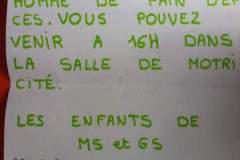 HOMME DE PAIN D'ÉPI
CES. VOUS POUVEZ
VENIR A 16H DANS
LA SALLE DE MOTRI
CITÉ.
LES ENFANTS DE
MS et GS